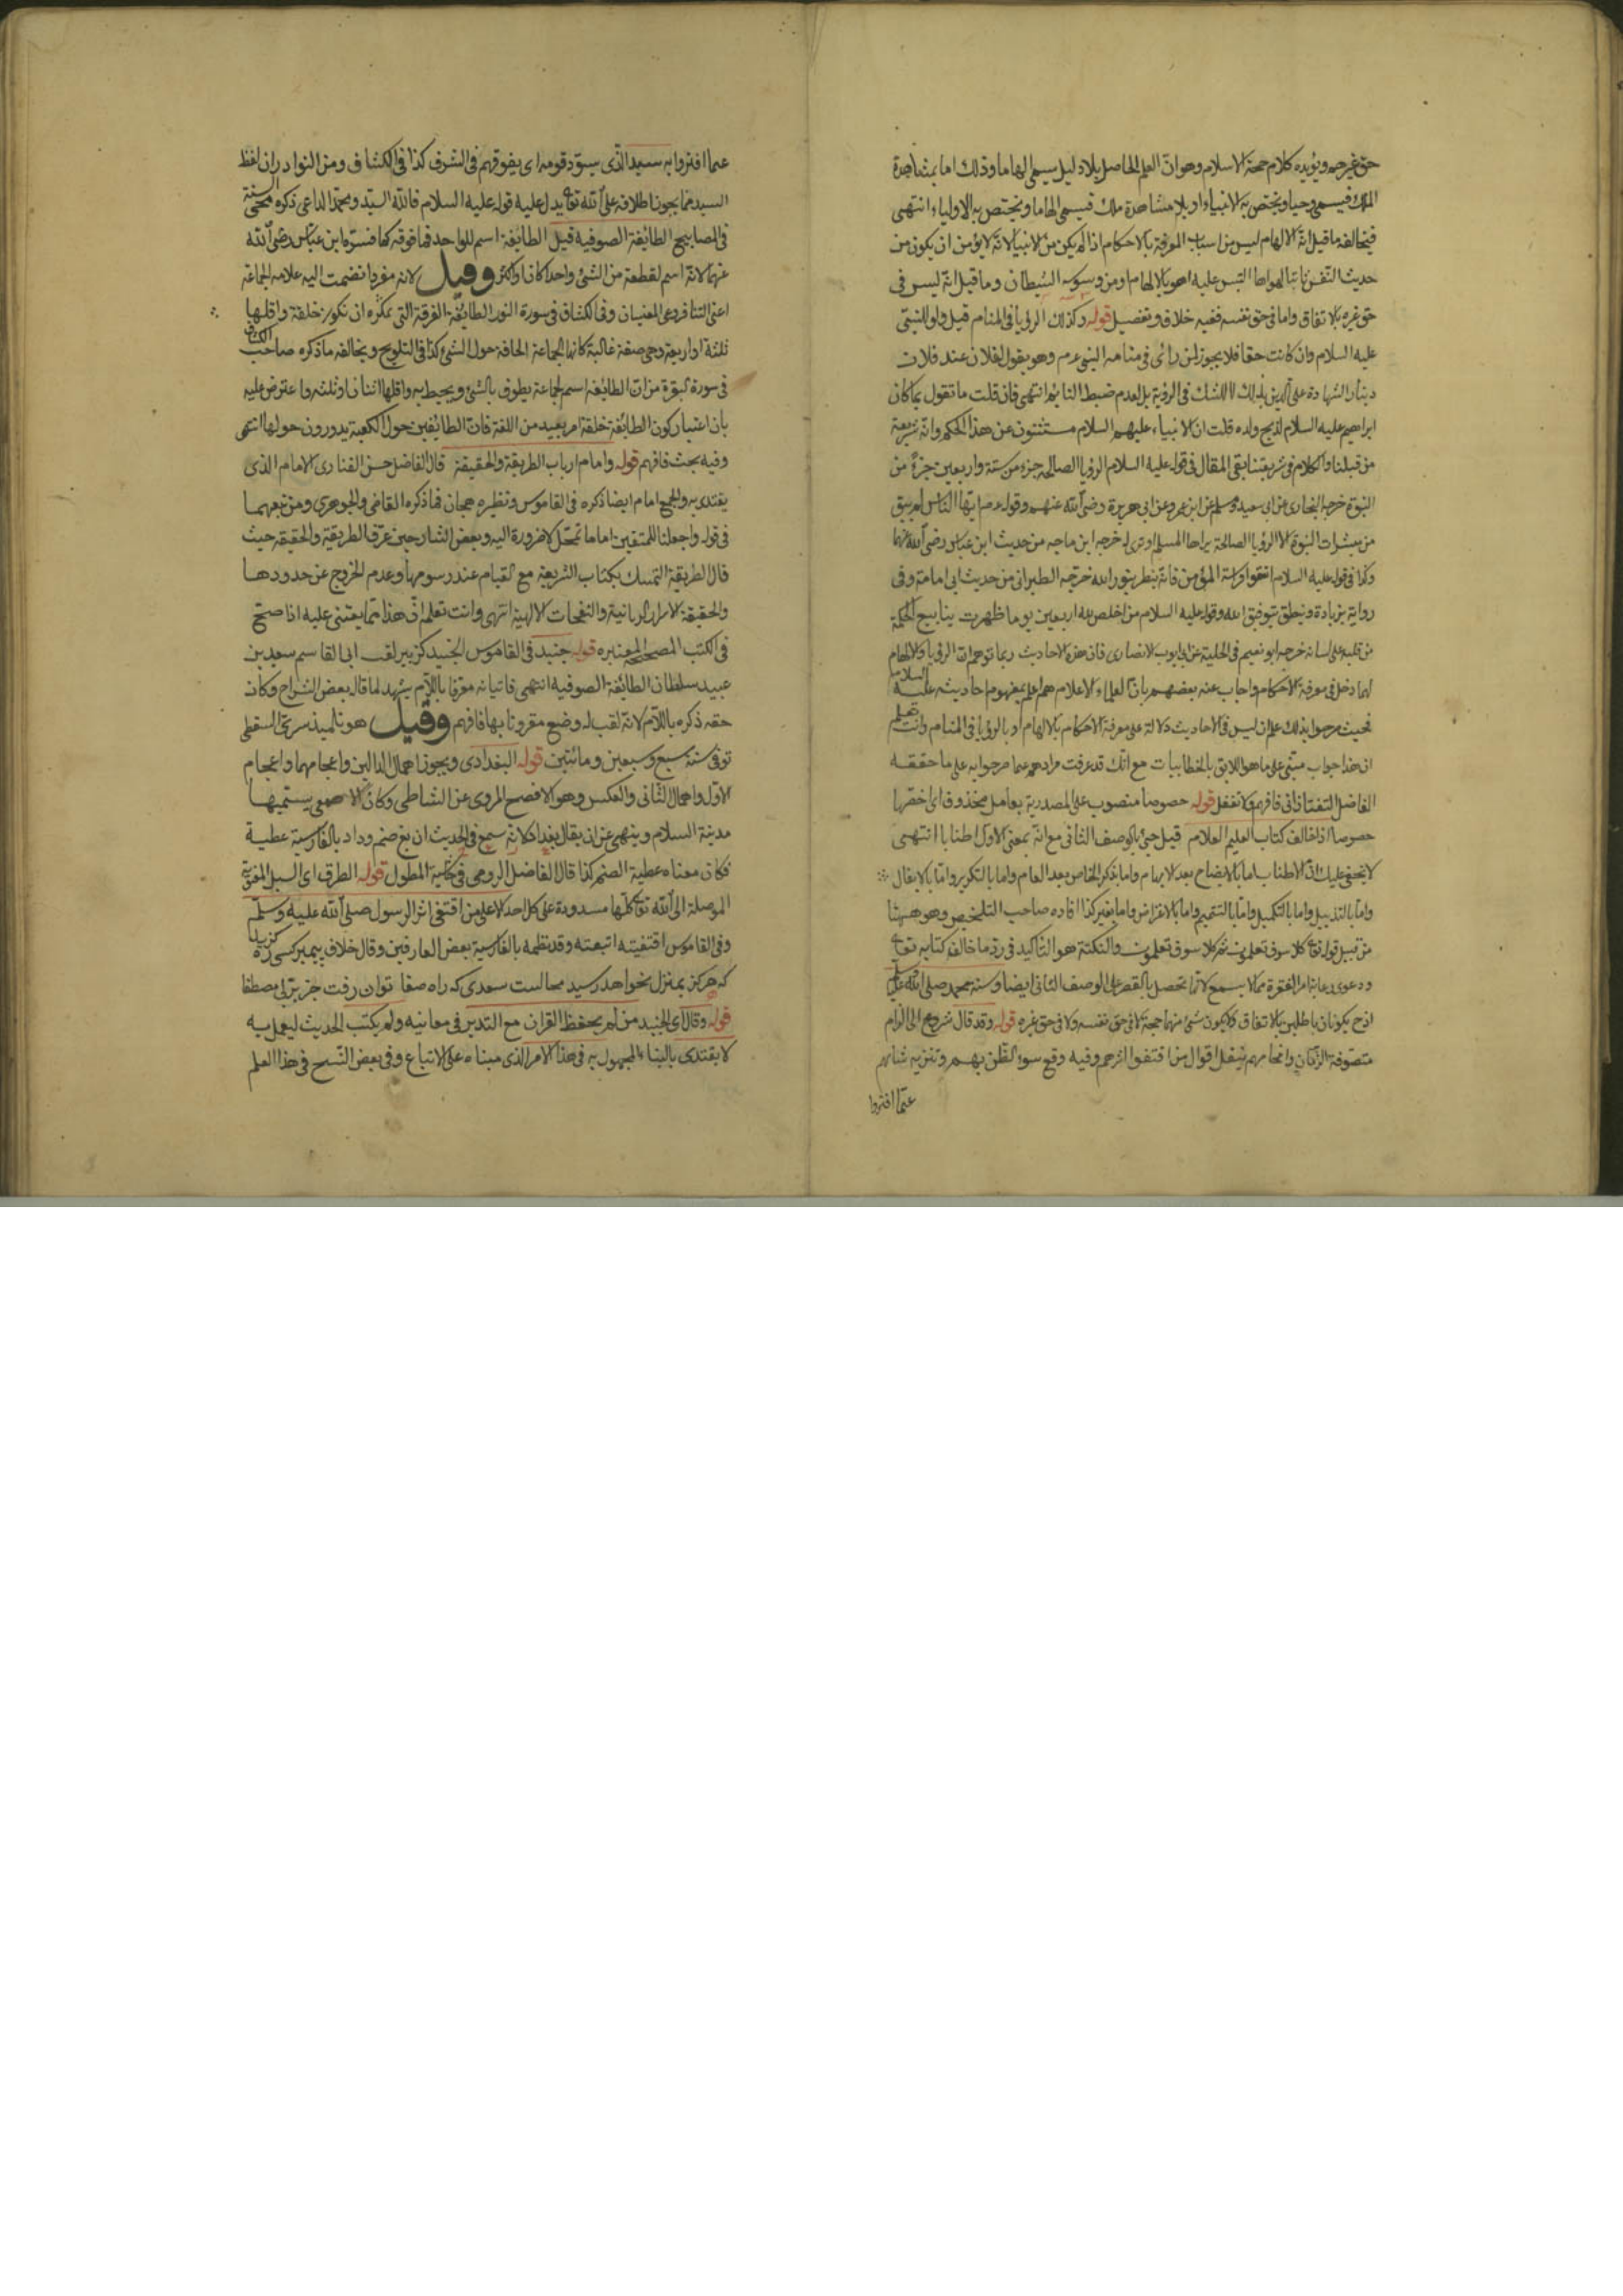 حق غيره ويؤيده كلام حجة الاسلام وهو ان العلم الحاصل بلا دليل يسمى الهاما وذلك اما بمشاهدة
الملك فيسمى وحيا ويختص به الانبياء او بلا مشاهدة ملك فيسمى الهاما ويختص به الاولياء انتهى
فيخالفه ما قيل انه الالهام ليس من اسباب المعرفة بالاحكام اذا لم يكن من الانبياء لانه لا يؤمن ان يكون من
حديث النفس التبس عليه امره بالالهام ومن وسوسة الشيطان وما قيل انه ليس فى
حق غيره بالاتفاق واما فى حق نفسه ففيه خلاف وتفصيل قوله وكذلك الرؤيا فى المنام قيل ولو للنبى
عليه السلام وان كانت حقا فلا يجوز لمن رأى فى منامه النبى عرم وهو يقول لفلان عند فلان
دينار الشهادة على الدين بذلك لا للشك فى الرؤية بل لعدم ضبط النائم انتهى فان قلت ما تقول بما كان
ابراهيم عليه السلام لذبح ولده قلت ان الانبياء عليهم السلام مستثنون عن هذا الحكم وانه شريعة
من قبلنا والكلام فى شريعتنا بقى المقال فى قوله عليه السلام الرؤيا الصالحة جزء من ستة واربعين جزءً من
النبوة خرجه البخارى عن ابى سعيد ومسلم عن ابن عمر وعن ابى هريرة رضى الله عنهم وقوله عرم ايها الناس لم يبق
من مبشرات النبوة الا الرؤيا الصالحة يراها المسلم او ترى له خرجه ابن ماجه من حديث ابن عباس رضى الله عنهما
وكذا فى قوله عليه السلام اتقوا فراسة المؤمن فانه ينظر بنور الله خرجه الطبرانى من حديث ابى امامة وفى
رواية بزيادة وينطق بتوفيق الله وقوله عليه السلام من اخلص لله اربعين يوما ظهرت ينابيع الحكمة
من قلبه على لسانه خرجه ابو نعيم فى الحلية عن ابى ايوب الانصارى فان هذه الاحاديث ربما توهم ان الرؤيا والالهام
لهما دخل فى معرفة الاحكام واجاب عنه بعضهم بان العلماء الاعلام هم اعلم بمفهوم احاديثه عليه السلام
فحيث صرحوا بذلك علم ان ليس فى الاحاديث دلالة على معرفة الاحكام بالالهام او بالرؤيا فى المنام وانت تعلم
ان هذا جواب مبنى على ما هو اللايق بالخطابيات مع انك قد عرفت مرادهم عما صرحوا به على ما حققه
الفاضل التفتازانى فافهم ولا تغفل قوله خصوصا منصوب على المصدرية بعامل محذوف اى اخصها
خصوصا اذا خالف كتاب العليم العلام قيل جئ بالوصف الثانى مع انه بمعنى الاول اطنابا انتهى
لا يخفى عليك ان الاطناب اما بالايضاح بعد الابهام واما بذكر الخاص بعد العام واما بالتكرير واما بالايغال
واما بالتذييل واما بالتكميل واما بالتتميم واما بالاعتراض واما بغير كذا افاده صاحب التلخيص وهو ههنا
من قبيل قوله تع كلا سوف تعلمون ثم كلا سوف تعلمون والنكتة هو التأكيد فى رد ما خالف كتابه تع
ودعوى رعاية امر الفقرة مما لا يسمع لانها تحصل بالقصر على الوصف الثانى ايضا وسنة محمد صلى الله عليه وسلم
اذ ح يكونان باطلين بالاتفاق ولا يكون شئ منهما حجة لا فى حق نفسه ولا فى حق غيره قوله وقد قال شروع الى الزام
متصوفة الزمان وافحامهم بنقل اقوال من اقتفوا اثرهم وفيه وقع سوء الظن بهم وتنزيه شانهم
عما افتروا
عما افتروا به سيد الذى يسود قومه اى يفوقهم فى الشرف كذا فى الكشاف ومن النوادر ان لفظ
السيد مما يجوز اطلاقه على الله تع يدل عليه قوله عليه السلام فالله السيد ومحمد الداعى ذكره محيى السنة
فى المصابيح الطائفة الصوفيه قيل الطائفة اسم للواحد فما فوقه كما فسره ابن عباس رضى الله
عنهما لانه اسم لقطعة من الشئ واحدا كان او اكثر وقيل لانه مفرد انضمت اليه علامة الجماعة
اعنى التا فروعى المعنيان وفى الكشاف فى سورة النور الطائفة الفرقة التى يمكن ان تكون حلقة واقلها
ثلثة او اربعة وهى صفة غالبة كانها الجماعة الحافة حول الشئ كذا فى التلويح ويخالفه ما ذكره صاحب الكشاف
فى سورة البقرة من ان الطائفة اسم لجماعة يطوف بالشئ ويحيط به واقلها اثنان او ثلثه واعترض عليه
بان اعتبار كون الطائفة حلقة امر بعيد من اللغة فان الطائفين حول الكعبة يدورون حولها انتهى
وفيه بحث فافهم قوله وامام ارباب الطريقة والحقيقة قال الفاضل حسن الفنارى الامام الذى
يقتدى به والجمع امام ايضا ذكره فى القاموس ونظيره هجان فما ذكره القاضى والجوهرى ومن تبعهما
فى قوله واجعلنا للمتقين اماما تمحل لا ضرورة اليه وبعض الشارحين عرف الطريقة والحقيقه حيث
قال الطريقة التمسك بكتاب الشريعة مع القيام عند رسومها وعدم الخروج عن حدودها
والحقيقة الاسرار الربانية والنفحات الالهية انتهى وانت تعلم ان هذا مما يعتنى عليه اذا صح
فى الكتب المصححة المعتبره قوله جنيد فى القاموس الجنيد كزبير لقب ابى القاسم سعيد بن
عبيد سلطان الطائفة الصوفيه انتهى فاتيانه معرفا باللام يشهد لما قال بعض الشراح وكان
حقه ذكره باللام لانه لقب له وضع مقرونا بها فافهم وقيل هو تلميذ سرى السقطى
توفى سنة سبع وسبعين ومائتين قوله البغدادى ويجوز اهمال الدالين واعجامهما واعجام
الاول واهمال الثانى والعكس وهو الافصح المروى عن الشاطى وكان الاصمعى يسميها
مدينة السلام وينهى عن ان يقال بغداد لانه سمع فى الحديث ان بغ صنم وداد بالفارسية عطية
فكان معناه عطية الصنم كذا قال الفاضل الرومى فى حاشية المطول قوله الطرق اى السبل المقربة
الموصلة الى الله تع كلها مسدودة على كل احد الا على من اقتفى اثر الرسول صلى الله عليه وسلم
وفى القاموس اقتفيته اتبعته وقد نظمه بالفارسية بعض العارفين وقال خلاف پيمبر كسى ره كزيد
كه هركز بمنزل نخواهد رسيد محالست سعدى كه راه صفا توان رفت جز بر پى مصطفا
قوله وقال اى الجنيد من لم يحفظ القران مع التدبر فى معانيه ولم يكتب الحديث ليعمل به
لا يقتدى بالبناء المجهول به فى هذا الامر الذى مبناه على الاتباع وفى بعض النسخ فى هذا العلم